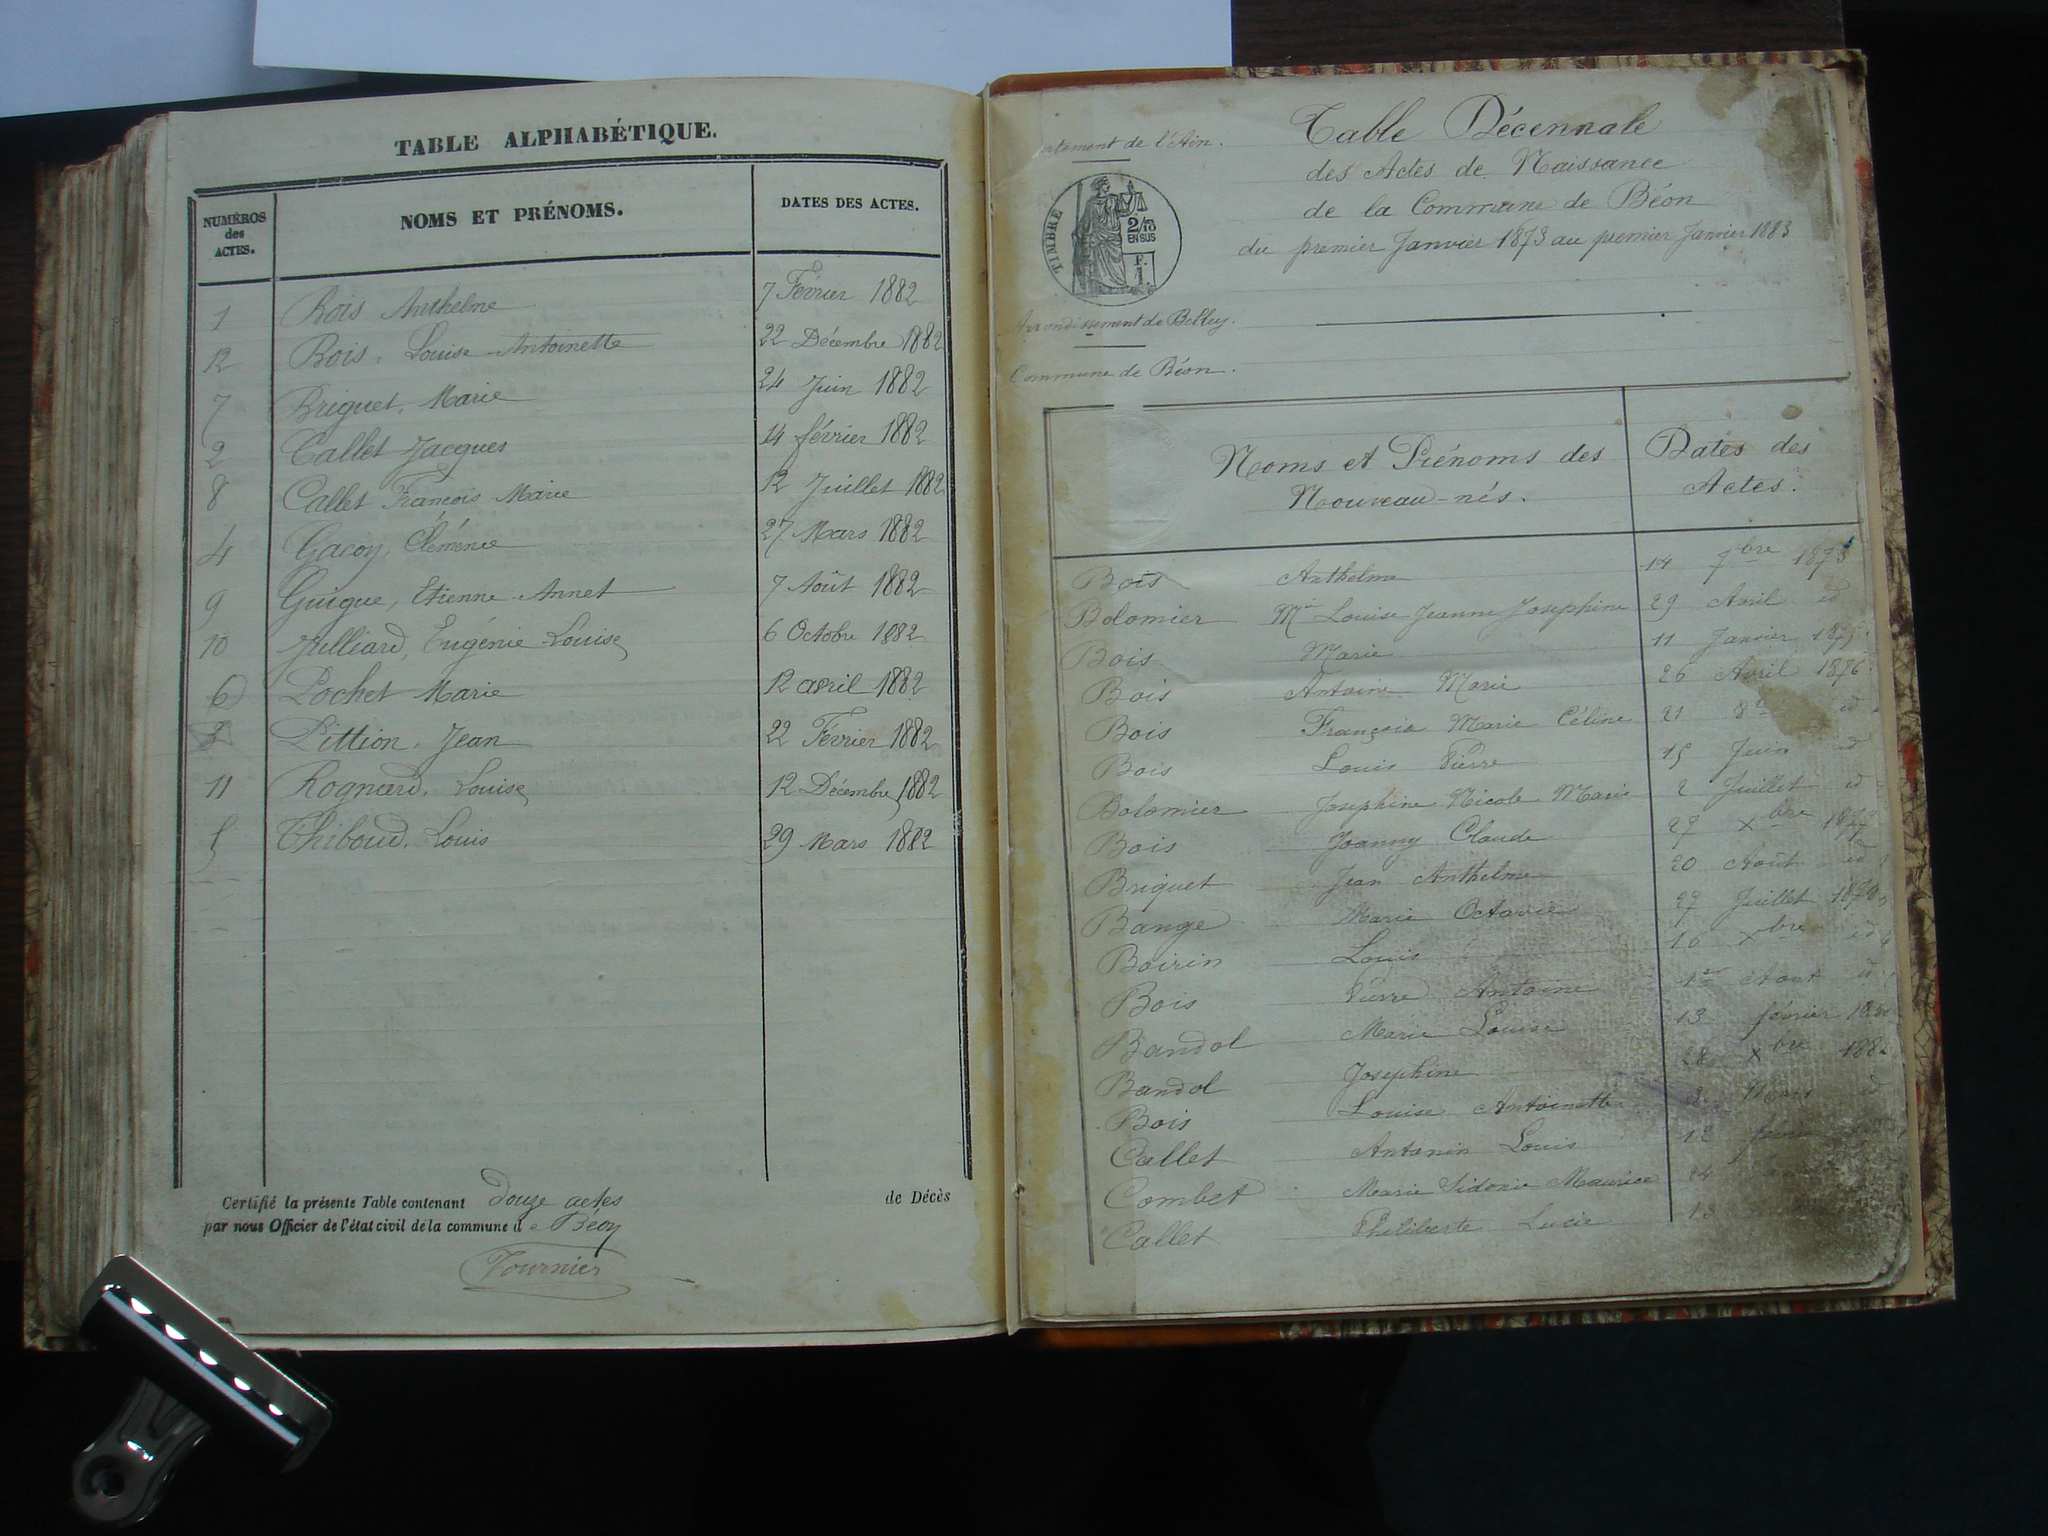 TABLE ALPHABÉTIQUE.
NUMÉROS des ACTES. NOMS ET PRÉNOMS. DATES DES ACTES.
1 Bois Anthelme 7 Février 1882
12 Bois, Louise Antoinette 22 Décembre 1882
7 Briguet, Marie 24 Juin 1882
2 Callet Jacques 14 février 1882
8 Callet François Marie 12 Juillet 1882
4 Gacoy, Clémence 27 Mars 1882
9 Guigue, Etienne Annet 7 Août 1882
10 Juilliard, Eugénie Louise 6 Octobre 1882
6 Pochet Marie 12 avril 1882
3 Pittion, Jean 22 Février 1882
11 Rognard, Louise 12 Décembre 1882
5 Thiboud, Louis 29 Mars 1882
Certifié la présente Table contenant douze actes de Décès
par nous Officier de l'état civil de la commune de Béon
Tournier
Table Décennale
des Actes de Naissance
de la Commune de Béon
du premier Janvier 1873 au premier Janvier 1883
artement de l'Ain.
TIMBRE
2/10
EN SUS
F.
1
Arrondissement de Belley.
Commune de Béon.
Noms et Prénoms des Nouveau-nés. Dates des Actes.
Bois Anthelme 14 7bre 1873
Bolomier Mie Louise Jeanne Josephine 29 Avril id
Bois Marie 11 Janvier
Bois Antoine Marie 26 Avril 1876
Bois François Marie Céline 21 id
Bois Louis Pierre 15 Juin id
Bolomier Josephine Nicole Marie 2 Juillet id
Bois Joanny Claude 27 Xbre 1877
Briguet Jean Anthelme 20 Août id
Bange Marie Octavie 27 Juillet
Boirin Louis 10 Xbre id
Bois Pierre Antoine 1er Aout
Bandol Marie Louise 13 février
Bandol Josephine 28 Xbre
Bois Louise Antoinette Mars
Callet Antonin Louis 12
Combet Marie Sidonie Maurice 24
Callet Philiberte Lucie 13